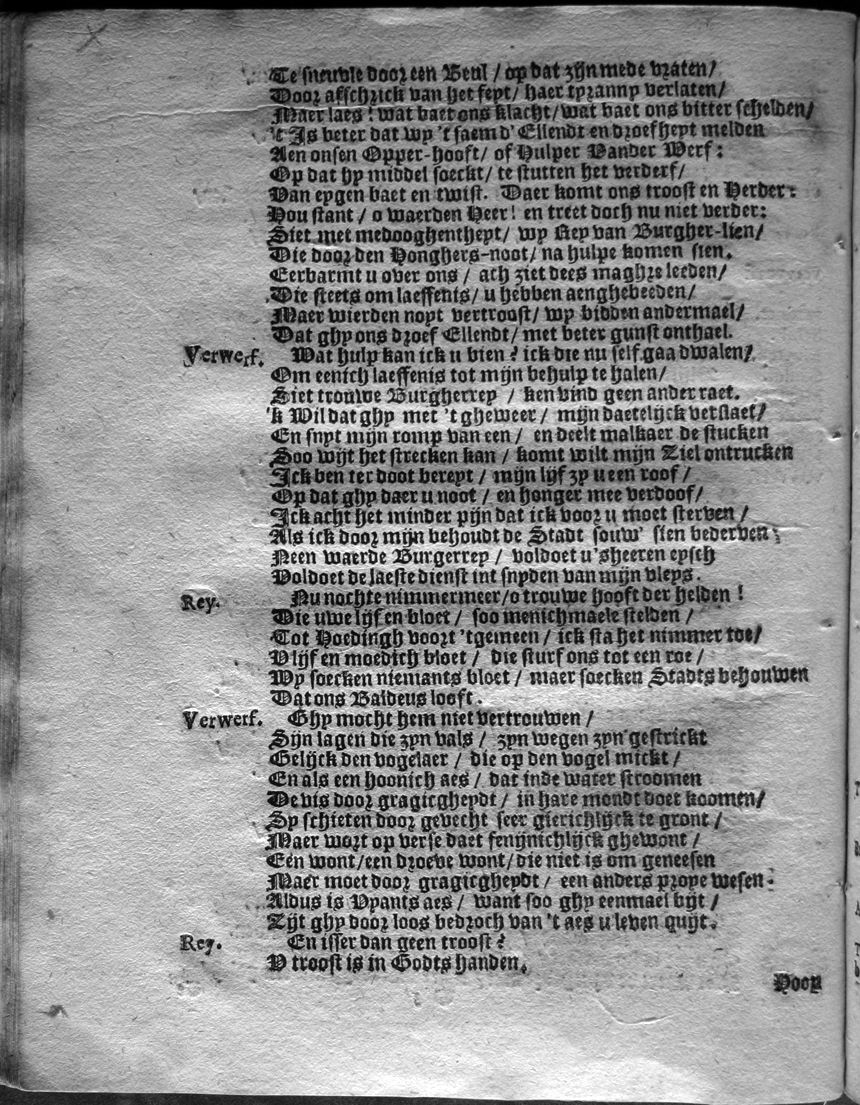 Te sneuvle door een Beul / op dat zijn mede vraten /
Door afschrick van het feyt / haer tyranny verlaten /
Maer laes ! wat baet ons klacht / wat baet ons bitter schelden /
't Is beter dat wy 't saem d' Ellendt en droefheyt melden
Aen onsen Opper-hooft / of Hulper Vander Werf :
Op dat hy middel soeckt / te stutten het verderf /
Van eygen baet en twist. Daer komt ons troost en Herder :
Hou stant / o waerden Heer ! en treet doch nu niet verder :
Siet met medooghentheyt / wy Rey van Burgher-lien /
Die door den Honghers-noot / na hulpe komen sien.
Eerbarmt u over ons / ach ziet dees maghre leeden /
Die steets om laeffenis / u hebben aenghebeeden /
Maer wierden noyt vertroost / wy bidden andermael /
Dat ghy ons droef Ellendt / met beter gunst onthael.
Verwerf. Wat hulp kan ick u bien ? ick die nu self gaa dwalen /
Om eenich laeffenis tot mijn behulp te halen /
Siet trouwe Burgherrey / ken vind geen ander raet.
'k Wil dat ghy met 't gheweer / mijn daetelijck verslaet /
En snyt mijn romp van een / en deelt malkaer de stucken
Soo wijt het strecken kan / komt wilt mijn Ziel ontrucken
Ick ben ter doot bereyt / mijn lijf zy u een roof /
Op dat ghy daer u noot / en honger mee verdoof /
Ick acht het minder pijn dat ick voor u moet sterven /
Als ick door mijn behoudt de Stadt souw' sien bederven ;
Neen waerde Burgerrey / voldoet u 'sheeren eysch
Voldoet de laeste dienst int snyden van mijn vleys.
Rey. Nu nochte nimmermeer / o trouwe hooft der helden !
Die uwe lijf en bloet / soo menichmaele stelden /
Tot Hoedingh voort 'tgemeen / ick sta het nimmer toe /
V lijf en moedich bloet / die sturf ons tot een roe /
Wy soecken niemants bloet / maer soecken Stadts behouwen
Dat ons Baldeus looft.
Verwerf. Ghy mocht hem niet vertrouwen /
Sijn lagen die zyn vals / zyn wegen zyn gestrickt
Gelijck den vogelaer / die op den vogel mickt /
En als een hoonich aes / dat inde water stroomen
De vis door gragicgheydt / in hare mondt doet koomen /
Sy schieten door gevecht seer gierichlijck te gront /
Maer wort op verse daet fenijnichlijck ghewont /
Een wont / een droeve wont / die niet is om geneesen
Maer moet door gragicgheydt / een anders prope wesen :
Aldus is Vyants aes / want soo ghy eenmael bijt /
Zijt ghy door loos bedroch van 't aes u leven quijt.
Rey. En isser dan geen troost ?
V troost is in Godts handen.
Hoop